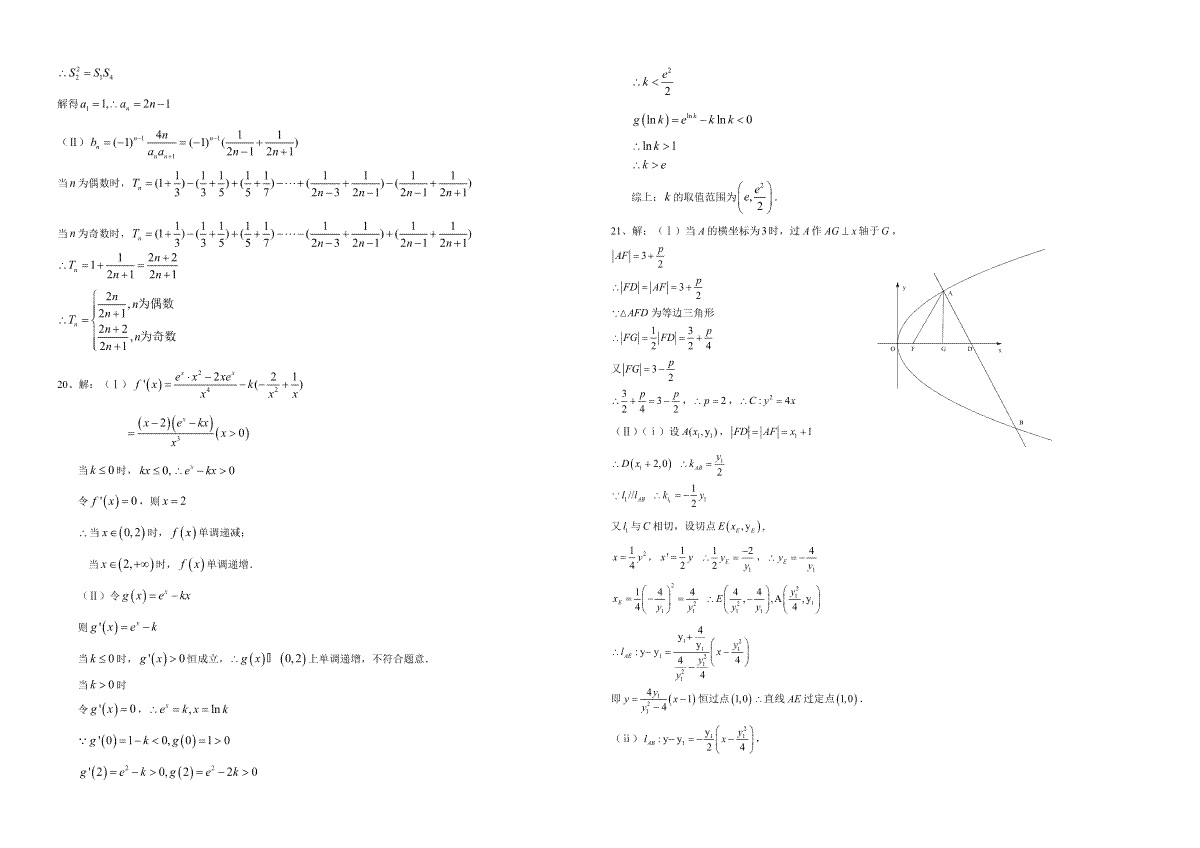 ∴S₂² = S₁S₄
解得a₁ = 1,∴aₙ = 2n − 1
（Ⅱ）bₙ = (−1)ⁿ⁻¹ 4n/(aₙaₙ₊₁) = (−1)ⁿ⁻¹(1/(2n−1) + 1/(2n+1))
当n为偶数时，Tₙ = (1+1/3) − (1/3+1/5) + (1/5+1/7) − ⋯ + (1/(2n−3) + 1/(2n−1)) − (1/(2n−1) + 1/(2n+1))
当n为奇数时，Tₙ = (1+1/3) − (1/3+1/5) + (1/5+1/7) − ⋯ − (1/(2n−3) + 1/(2n−1)) + (1/(2n−1) + 1/(2n+1))
∴Tₙ = 1 + 1/(2n+1) = (2n+2)/(2n+1)
∴Tₙ = { 2n/(2n+1), n为偶数
(2n+2)/(2n+1), n为奇数
20、解：（Ⅰ）f'(x) = (eˣ·x² − 2xeˣ)/x⁴ − k(−2/x² + 1/x)
= (x−2)(eˣ − kx)/x³ (x > 0)
当k ≤ 0时，kx ≤ 0,∴eˣ − kx > 0
令f'(x) = 0，则x = 2
∴当x∈(0,2)时，f(x)单调递减；
当x∈(2,+∞)时，f(x)单调递增．
（Ⅱ）令g(x) = eˣ − kx
则g'(x) = eˣ − k
当k ≤ 0时，g'(x) > 0恒成立，∴g(x) (0,2)上单调递增，不符合题意．
当k > 0时
令g'(x) = 0，∴eˣ = k, x = ln k
∵g'(0) = 1 − k < 0, g(0) = 1 > 0
g'(2) = e² − k > 0, g(2) = e² − 2k > 0
∴k < e²/2
g(ln k) = e^(ln k) − k ln k < 0
∴ln k > 1
∴k > e
综上：k的取值范围为(e, e²/2)．
21、解：（Ⅰ）当A的横坐标为3时，过A作AG⊥x轴于G，
|AF| = 3 + p/2
∴|FD| = |AF| = 3 + p/2
∵△AFD为等边三角形
∴|FG| = 1/2|FD| = 3/2 + p/4
又|FG| = 3 − p/2
∴3/2 + p/4 = 3 − p/2，∴p = 2，∴C: y² = 4x
y
A
O F G D x
B
（Ⅱ）（ⅰ）设A(x₁,y₁)，|FD| = |AF| = x₁ + 1
∴D(x₁+2,0) ∴k_AB = −y₁/2
∵l₁//l_AB ∴k_l₁ = −1/2 y₁
又l₁与C相切，设切点E(x_E,y_E)，
x = 1/4 y²，x' = 1/2 y ∴1/2 y_E = −2/y₁，∴y_E = −4/y₁
x_E = 1/4(−4/y₁)² = 4/y₁² ∴E(4/y₁², −4/y₁),A(y₁²/4, y₁)
∴l_AE: y−y₁ = (y₁+4/y₁)/(4/y₁²−y₁²/4) (x − y₁²/4)
即y = 4y₁/(y₁²−4) (x−1)恒过点(1,0)∴直线AE过定点(1,0)．
（ⅱ）l_AB: y−y₁ = −y₁/2 (x − y₁²/4)，